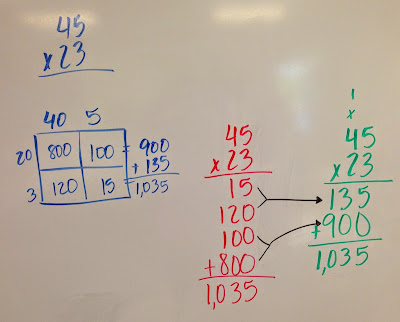 45
x 23
40 5
20 800 100 = 900
+ 135
3 120 15 = 1,035
45
x 23
15
120
100
+800
1,035
1
x
45
x 23
135
+900
1,035